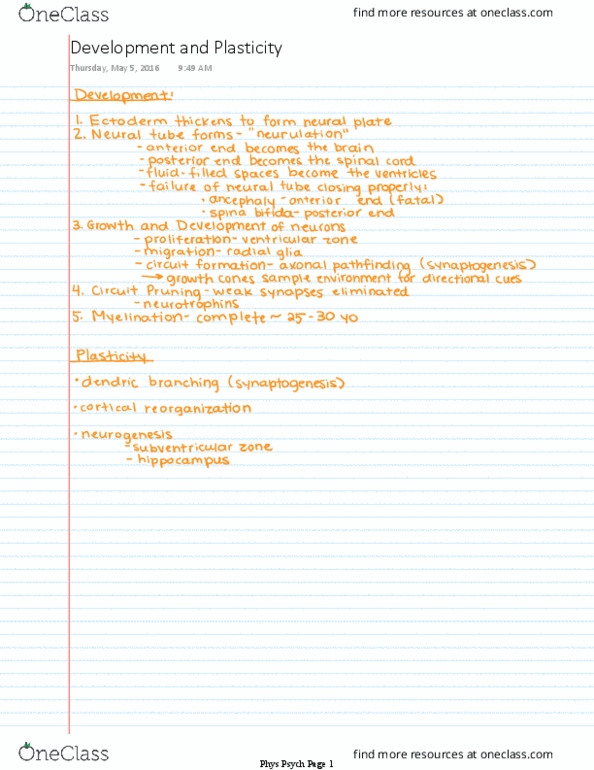 OneClass
find more resources at oneclass.com
Development and Plasticity
Thursday, May 5, 2016 9:49 AM
Development:
1. Ectoderm thickens to form neural plate
2. Neural tube forms - "neurulation"
- anterior end becomes the brain
- posterior end becomes the spinal cord
- fluid-filled spaces become the ventricles
- failure of neural tube closing properly:
• ancephaly - anterior end (fatal)
• spina bifida - posterior end
3. Growth and Development of neurons
- proliferation - ventricular zone
- migration - radial glia
- circuit formation - axonal pathfinding (synaptogenesis)
→ growth cones sample environment for directional cues
4. Circuit Pruning - weak synapses eliminated
- neurotrophins
5. Myelination - complete ~ 25-30 yo
Plasticity
• dendric branching (synaptogenesis)
• cortical reorganization
• neurogenesis
- subventricular zone
- hippocampus
OneClass
find more resources at oneclass.com
Phys Psych Page 1